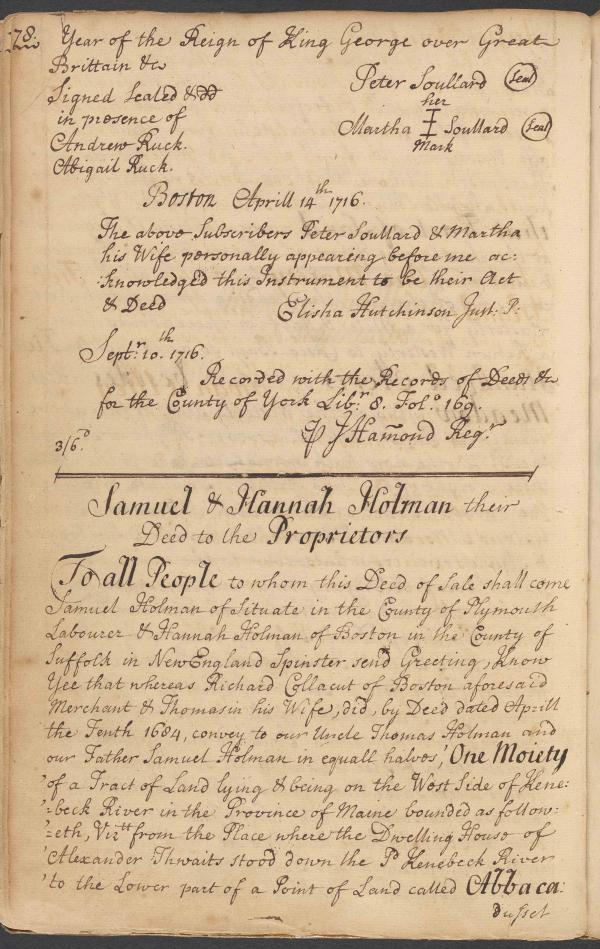 78.
Year of the Reign of King George over Great
Brittain &c
Signed Sealed & dd
in presence of
Andrew Ruck.
Abigail Ruck.
Peter Soullard (Seal)
her
Martha I Soullard (Seal)
Mark
Boston Aprill 14th 1716.
The above Subscribers Peter Soullard & Martha
his Wife personally appearing before me ac:
:knowledged this Instrument to be their Act
& Deed Elisha Hutchinson Just: P:
Septr: 10.th 1716.
Recorded with the Records of Deeds &c
for the County of York Libr. 8. Folo. 169.
℘ J Hamond Regr.
3/6D
Samuel & Hannah Holman their
Deed to the Proprietors
To all People to whom this Deed of Sale shall come
Samuel Holman of Situate in the County of Plymouth
Labourer & Hannah Holman of Boston in the County of
Suffolk in New England Spinster send Greeting, Know
Yee that whereas Richard Collacut of Boston aforesaid
Merchant & Thomasin his Wife, did, by Deed dated Aprill
the Tenth 1684, convey to our Uncle Thomas Holman and
our Father Samuel Holman in equall halves, 'One Moiety
'of a Tract of Land lying & being on the West Side of Kene:
':beck River in the Province of Maine bounded as follow:
':eth, Vizt from the Place where the Dwelling House of
'Alexander Thwaits stood down the Sd Kenebeck River
'to the Lower part of a Point of Land called Abbaca:
dusset